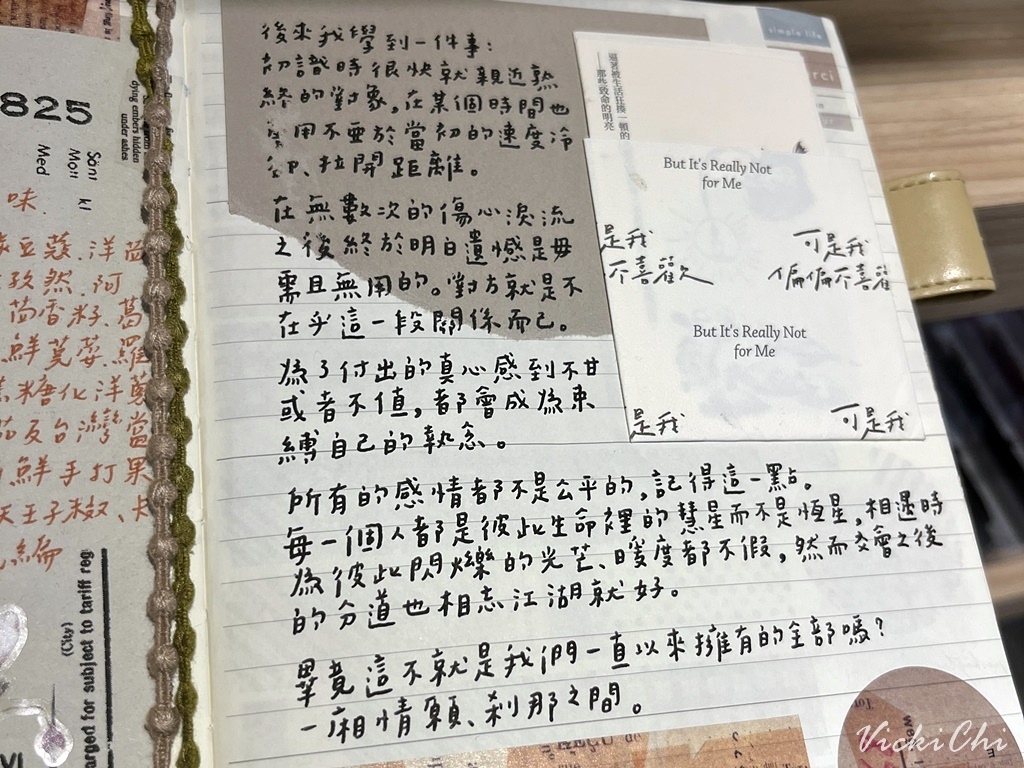 825
Mott
Med
味.
豆蔻.洋茴
孜然.阿
茴香籽.葛
鮮莧菜.羅
糖化洋蔥
茄及台灣當
鮮手打果
天王子椒、卡
編
(City)
arged for subject to tariff reg
VI
dying embers hidden
under ashes
後來我學到一件事：
初識時很快就親近熟
終的對象，在某個時間也
用不亞於當初的速度冷
卻、拉開距離。
在無數次的傷心淚流
之後終於明白遺憾是毋
需且無用的。對方就是不
在乎這一段關係而已。
為了付出的真心感到不甘
或者不值，都會成為束
縛自己的執念。
所有的感情都不是公平的，記得這一點。
每一個人都是彼此生命裡的慧星而不是恆星，相遇時
為彼此閃爍的光芒、暖度都不假，然而交會之後
的分道也相忘江湖就好。
畢竟這不就是我們一直以來擁有的全部嗎？
一廂情願、剎那之間。
simple life
rci
還著被生活狂揍一頓的
——那些致命的明亮
But It's Really Not
for Me
是我
不喜歡久
可是我
偏偏不喜歡
But It's Really Not
for Me
是我
可是我
To:
VickiChi